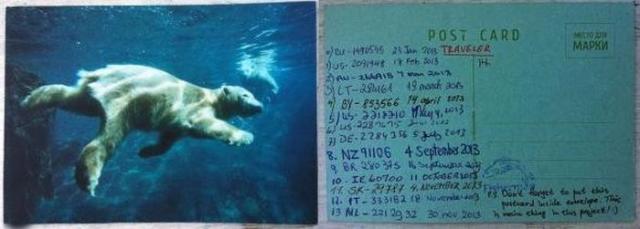 POST CARD
МЕСТО ДЛЯ
МАРКИ
TRAVELER
14.
0) RU-1490595 23 Jan 2013
1) US- 18 Feb 2013
2) AU- 7 mar 2013
3) LT- 19 march 2013
4) BY-853566 14 april 2013
5) US- May 9, 2013
6) US-2287675
7) DE-2284356 5 july 2013
8. NZ 91106 4 September 2013
9. BR 280375 16 September 2013
10. IE 60700 11 OCTOBER 2013
11. SK-29787 4. NOVEMBER 2013
12. PT-333182 18 November 2013
13 NL-2212932 30 nov 2013
P.S. Don't forget to put this
postcard inside envelope. This
is main thing in this project! :)